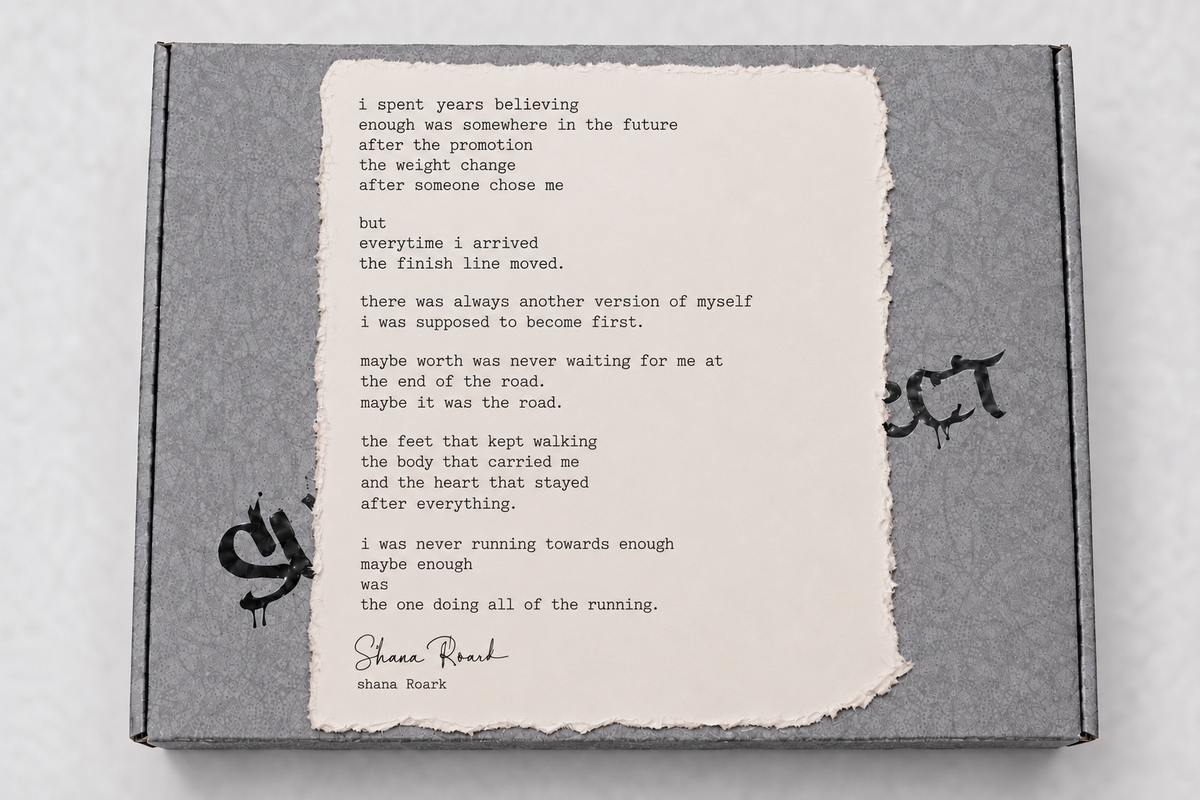 i spent years believing
enough was somewhere in the future
after the promotion
the weight change
after someone chose me
but
everytime i arrived
the finish line moved.
there was always another version of myself
i was supposed to become first.
maybe worth was never waiting for me at
the end of the road.
maybe it was the road.
the feet that kept walking
the body that carried me
and the heart that stayed
after everything.
i was never running towards enough
maybe enough
was
the one doing all of the running.
Shana Roark
shana Roark